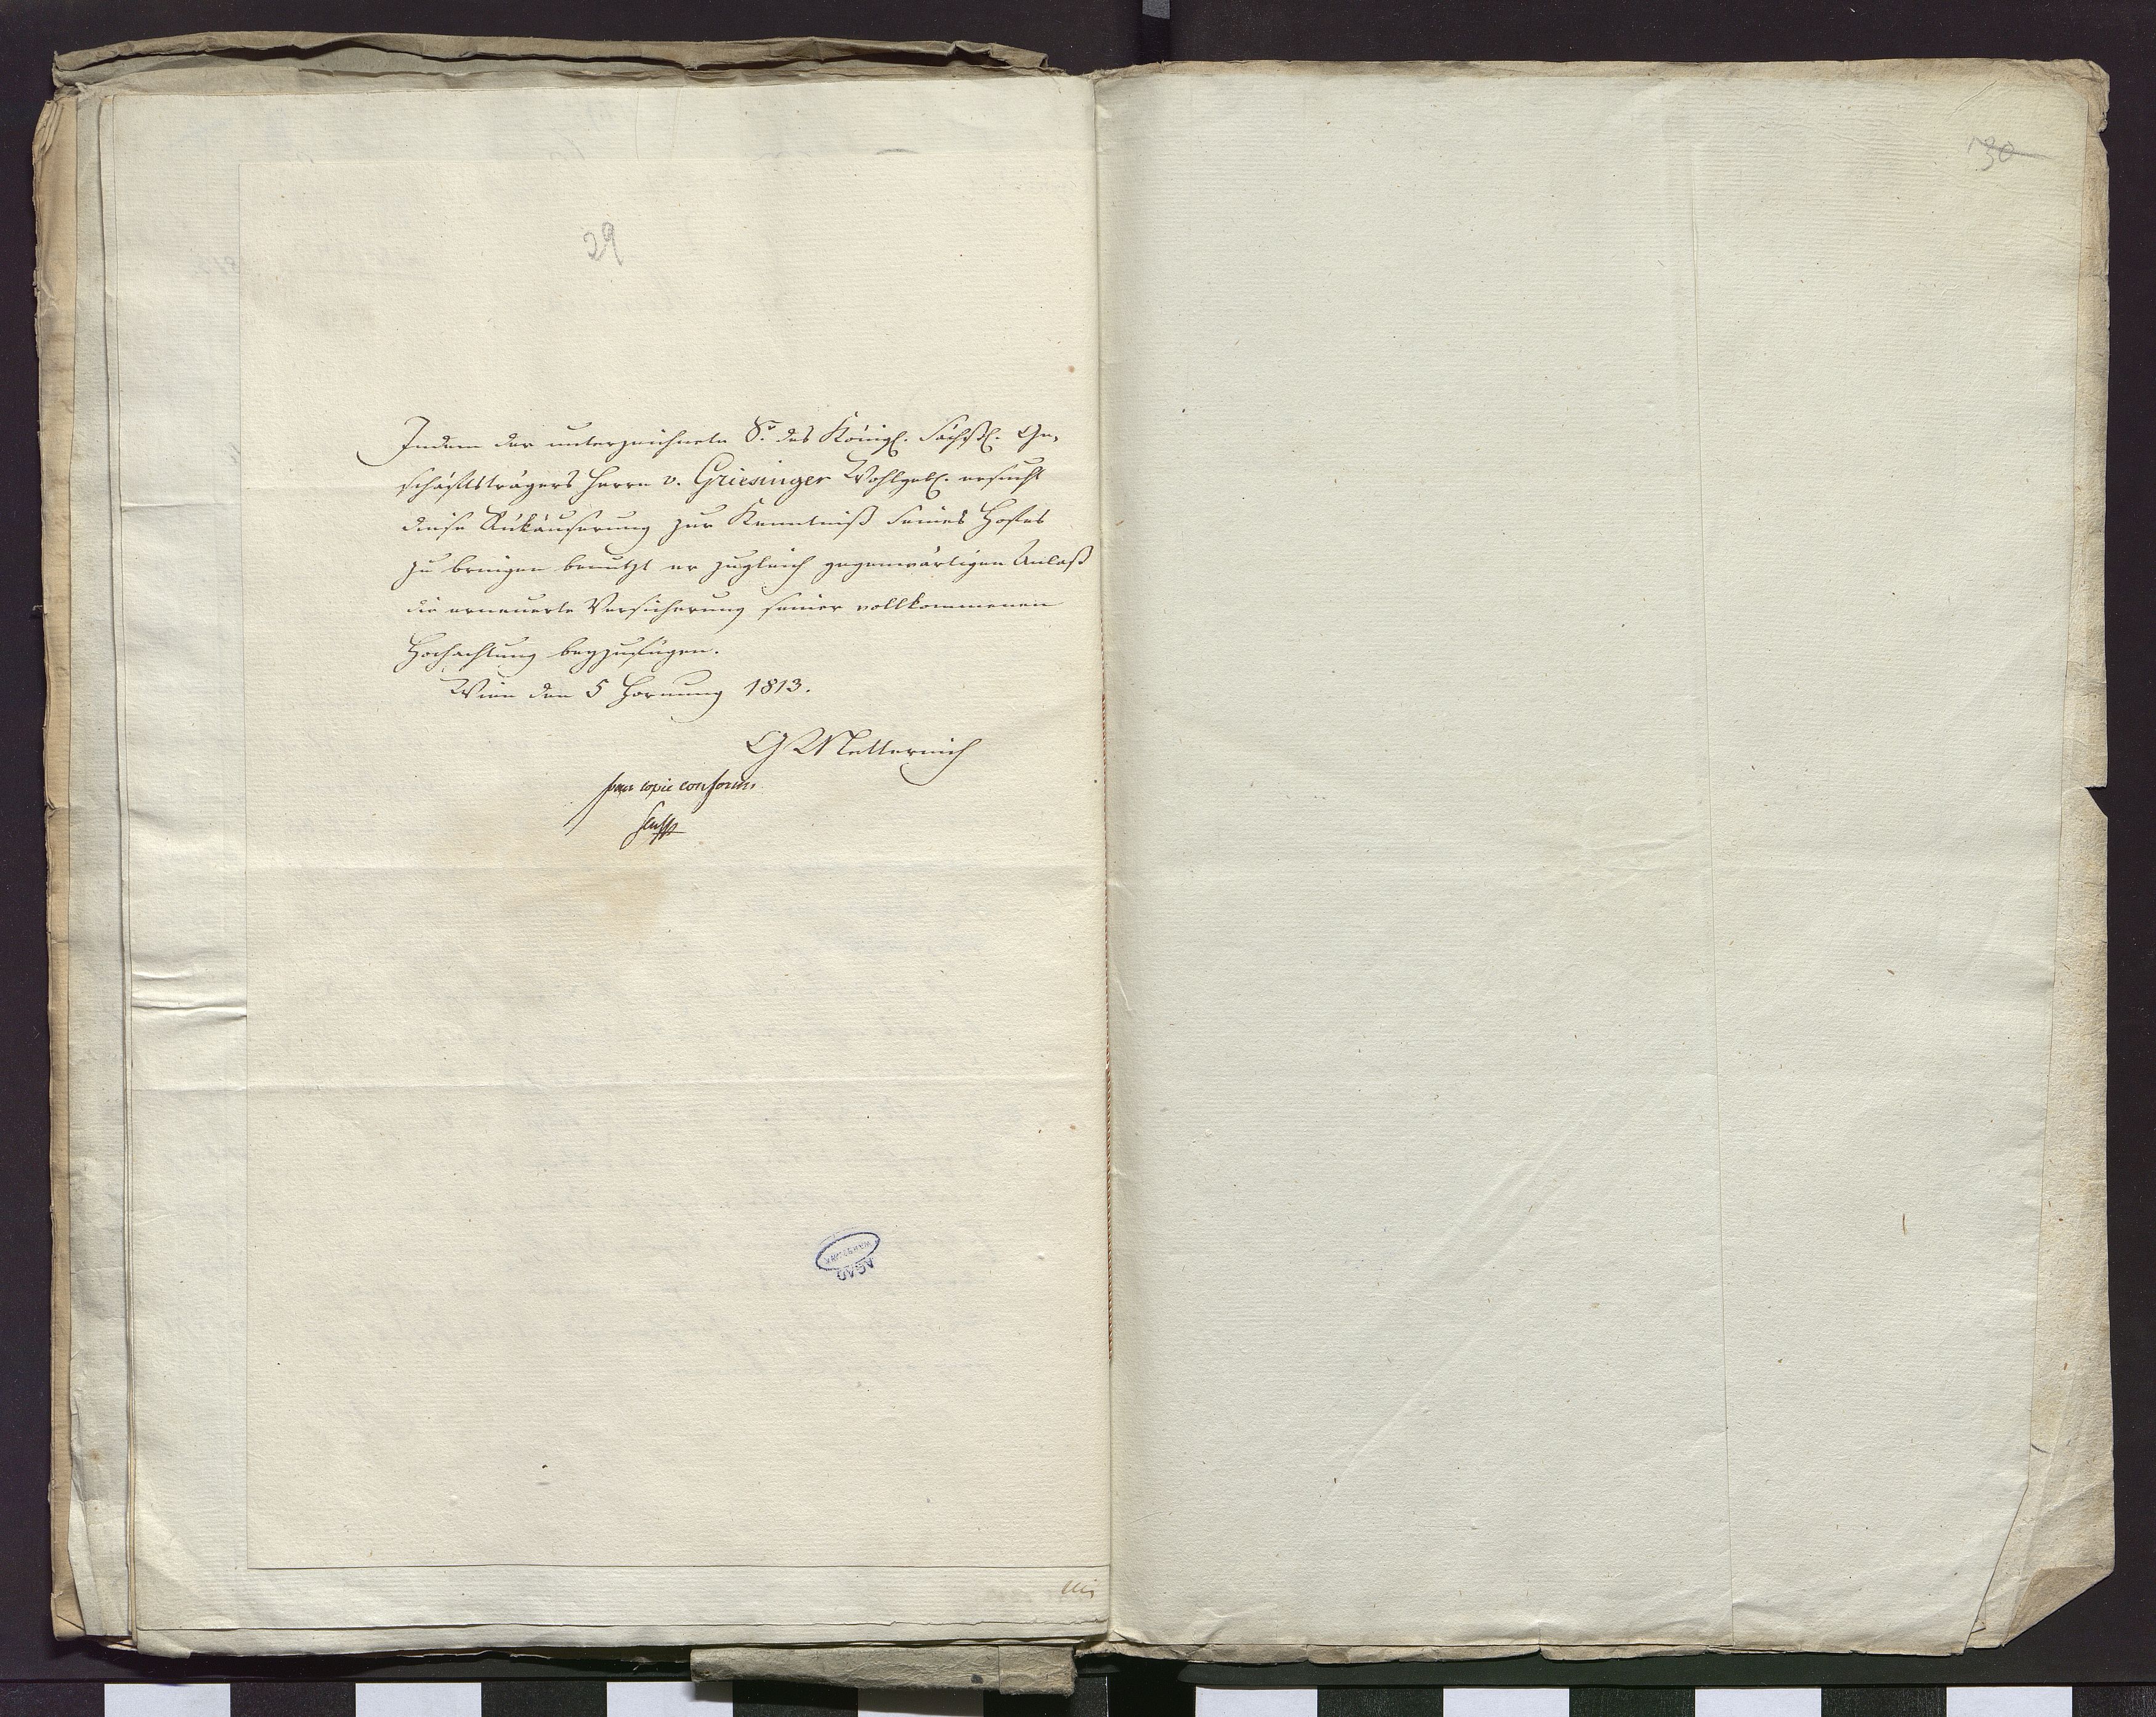 29
Indem der unterzeichnete Sr. des Königl. Sächßl. Ge-
schäftsträgers Herrn v. Griesinger Wohlgeb. ersucht
diese Rükäuserung zur Kenntniß Seines Hofes
zu bringen benutzt er zugleich gegenwärtigen Anlaß
die erneuerte Versicherung seiner vollkommenen
Hochachtung beyzufügen.
Wien den 5 Hornung 1813.
G Metternich
pour copie conforme
Senfft
AGAD
WARSZAWA
30